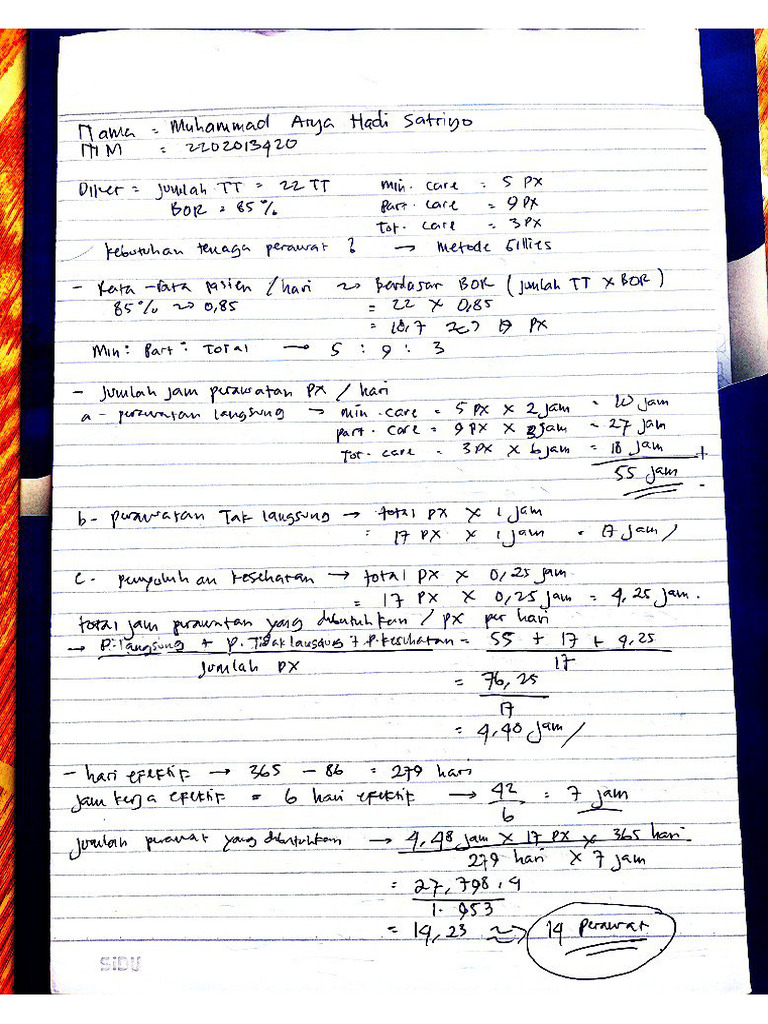 Nama : Muhammad Arya Hadi Satriyo
NIM : 2202013420
Diket = Jumlah TT = 22 TT min. care = 5 PX
BOR = 85% part. care = 9 PX
Tot. care = 3 PX
kebutuhan tenaga perawat ? → metode Gillies
- Rata-rata pasien / hari ~> berdasar BOR (jumlah TT x BOR)
85% ~> 0,85 = 22 x 0,85
= 18,7 ~> 19 PX
Min : Part : Total → 5 : 9 : 3
- Jumlah jam perawatan PX / hari
a - perawatan langsung → min. care = 5 PX x 2 jam = 10 jam
part. care = 9 PX x 3 jam = 27 jam
Tot. care = 3 PX x 6 jam = 18 jam +
55 jam
b - perawatan Tak langsung → total PX x 1 jam
= 17 PX x 1 jam = 17 jam /
c. penyuluhan kesehatan → total PX x 0,25 jam
= 17 PX x 0,25 jam = 4,25 jam.
total jam perawatan yang dibutuhkan / PX per hari
→ P. langsung + P. Tidak langsung + P. kesehatan = 55 + 17 + 4,25
Jumlah PX 17
= 76,25
17
= 4,48 jam /
- hari efektif → 365 - 86 = 279 hari
Jam kerja efektif = 6 hari efektif → 42 = 7 jam
6
jumlah perawat yang dibutuhkan → 4,48 jam x 17 PX x 365 hari
279 hari x 7 jam
= 27,798,4
1.953
= 14,23 ~> 14 perawat
SIDU